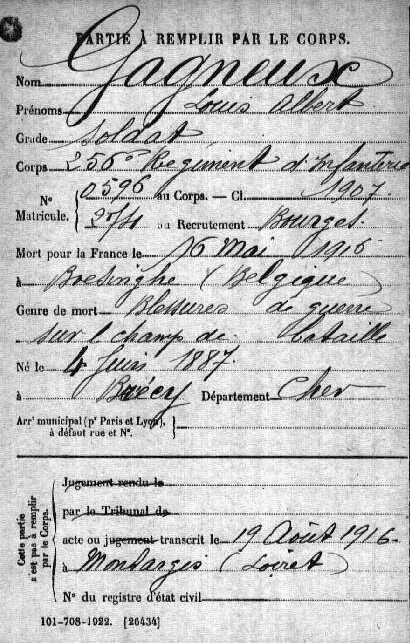 PARTIE À REMPLIR PAR LE CORPS.
Nom Gagneux
Prénoms Louis Albert
Grade Soldat
Corps 256e Régiment d'Infanterie
N° Matricule. { 0596 au Corps. — Cl. 1907
au Recrutement Bourges
Mort pour la France le 16 Mai 1916
à Boesinghe (Belgique)
Genre de mort Blessures de guerre
sur le champ de bataille
Né le 4 Juin 1887
à Brécy Département Cher
Arrt municipal (pr Paris et Lyon), à défaut rue et N°. }
Cette partie n'est pas à remplir par le Corps. {
Jugement rendu le
par le Tribunal de
acte ou jugement transcrit le 19 Août 1916
à Montargis (Loiret)
N° du registre d'état civil
101-708-1922. [26434]